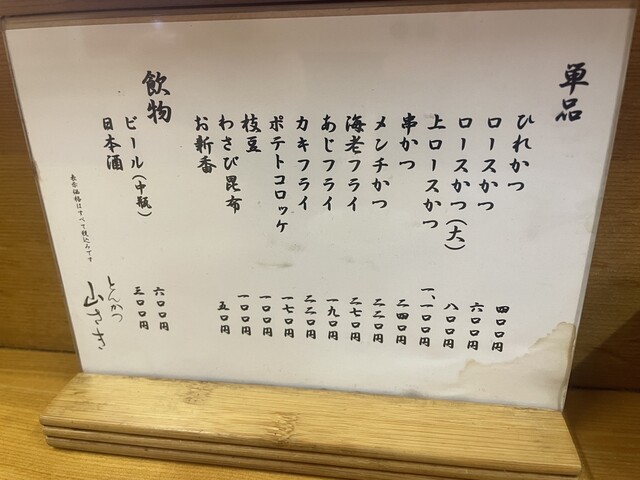 単品
ひれかつ 四〇〇円
ロースかつ 六〇〇円
ロースかつ(大) 八〇〇円
上ロースかつ 一、一〇〇円
串かつ 二四〇円
メンチかつ 二二〇円
海老フライ 二七〇円
あじフライ 一九〇円
カキフライ 二二〇円
ポテトコロッケ 一七〇円
枝豆 一〇〇円
わさび昆布 一〇〇円
お新香 五〇円
飲物
ビール(中瓶) 六〇〇円
日本酒 三〇〇円
表示価格はすべて税込みです
とんかつ
山さき